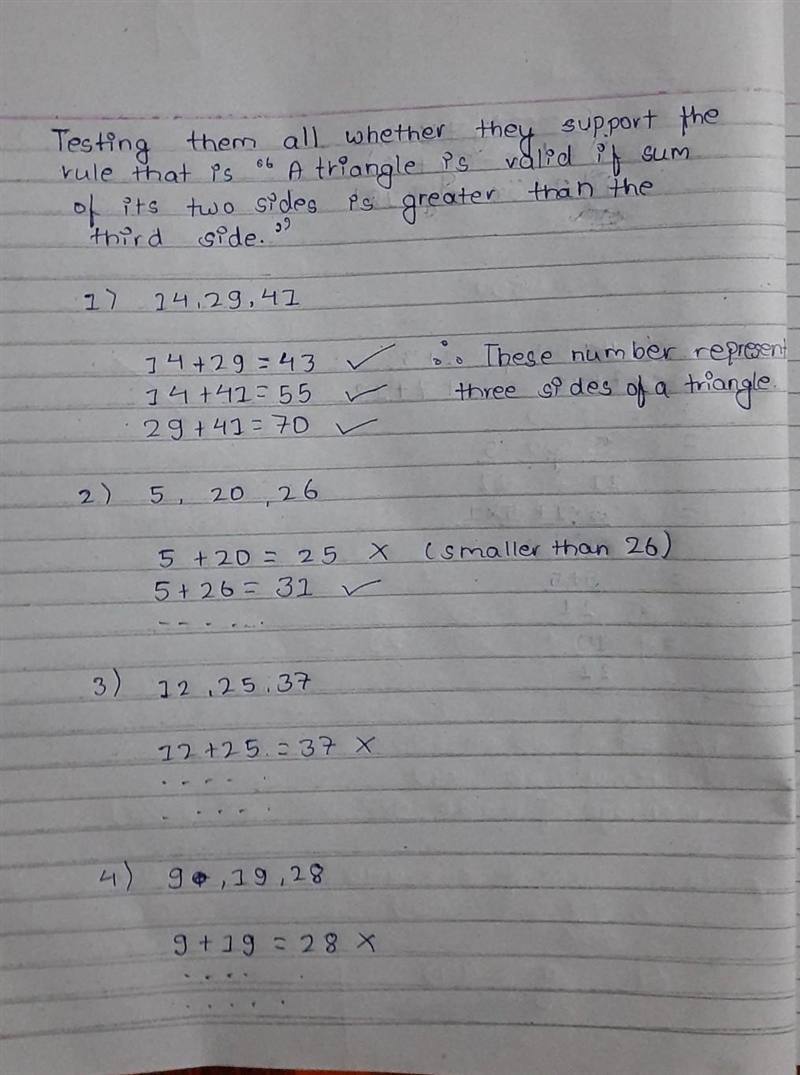 Testing them all whether they support the
rule that is “ A triangle is valid if sum
of its two sides is greater than the
third side.”
1) 14, 29, 41
14 + 29 = 43 ✓ ∴ These number represent
14 + 41 = 55 ✓ three sides of a triangle.
29 + 41 = 70 ✓
2) 5, 20, 26
5 + 20 = 25 × (smaller than 26)
5 + 26 = 31 ✓
-- - ....
3) 12, 25, 37
12 + 25 = 37 ×
.... .
. ....
4) 9, 19, 28
9 + 19 = 28 ×
.... .
.....